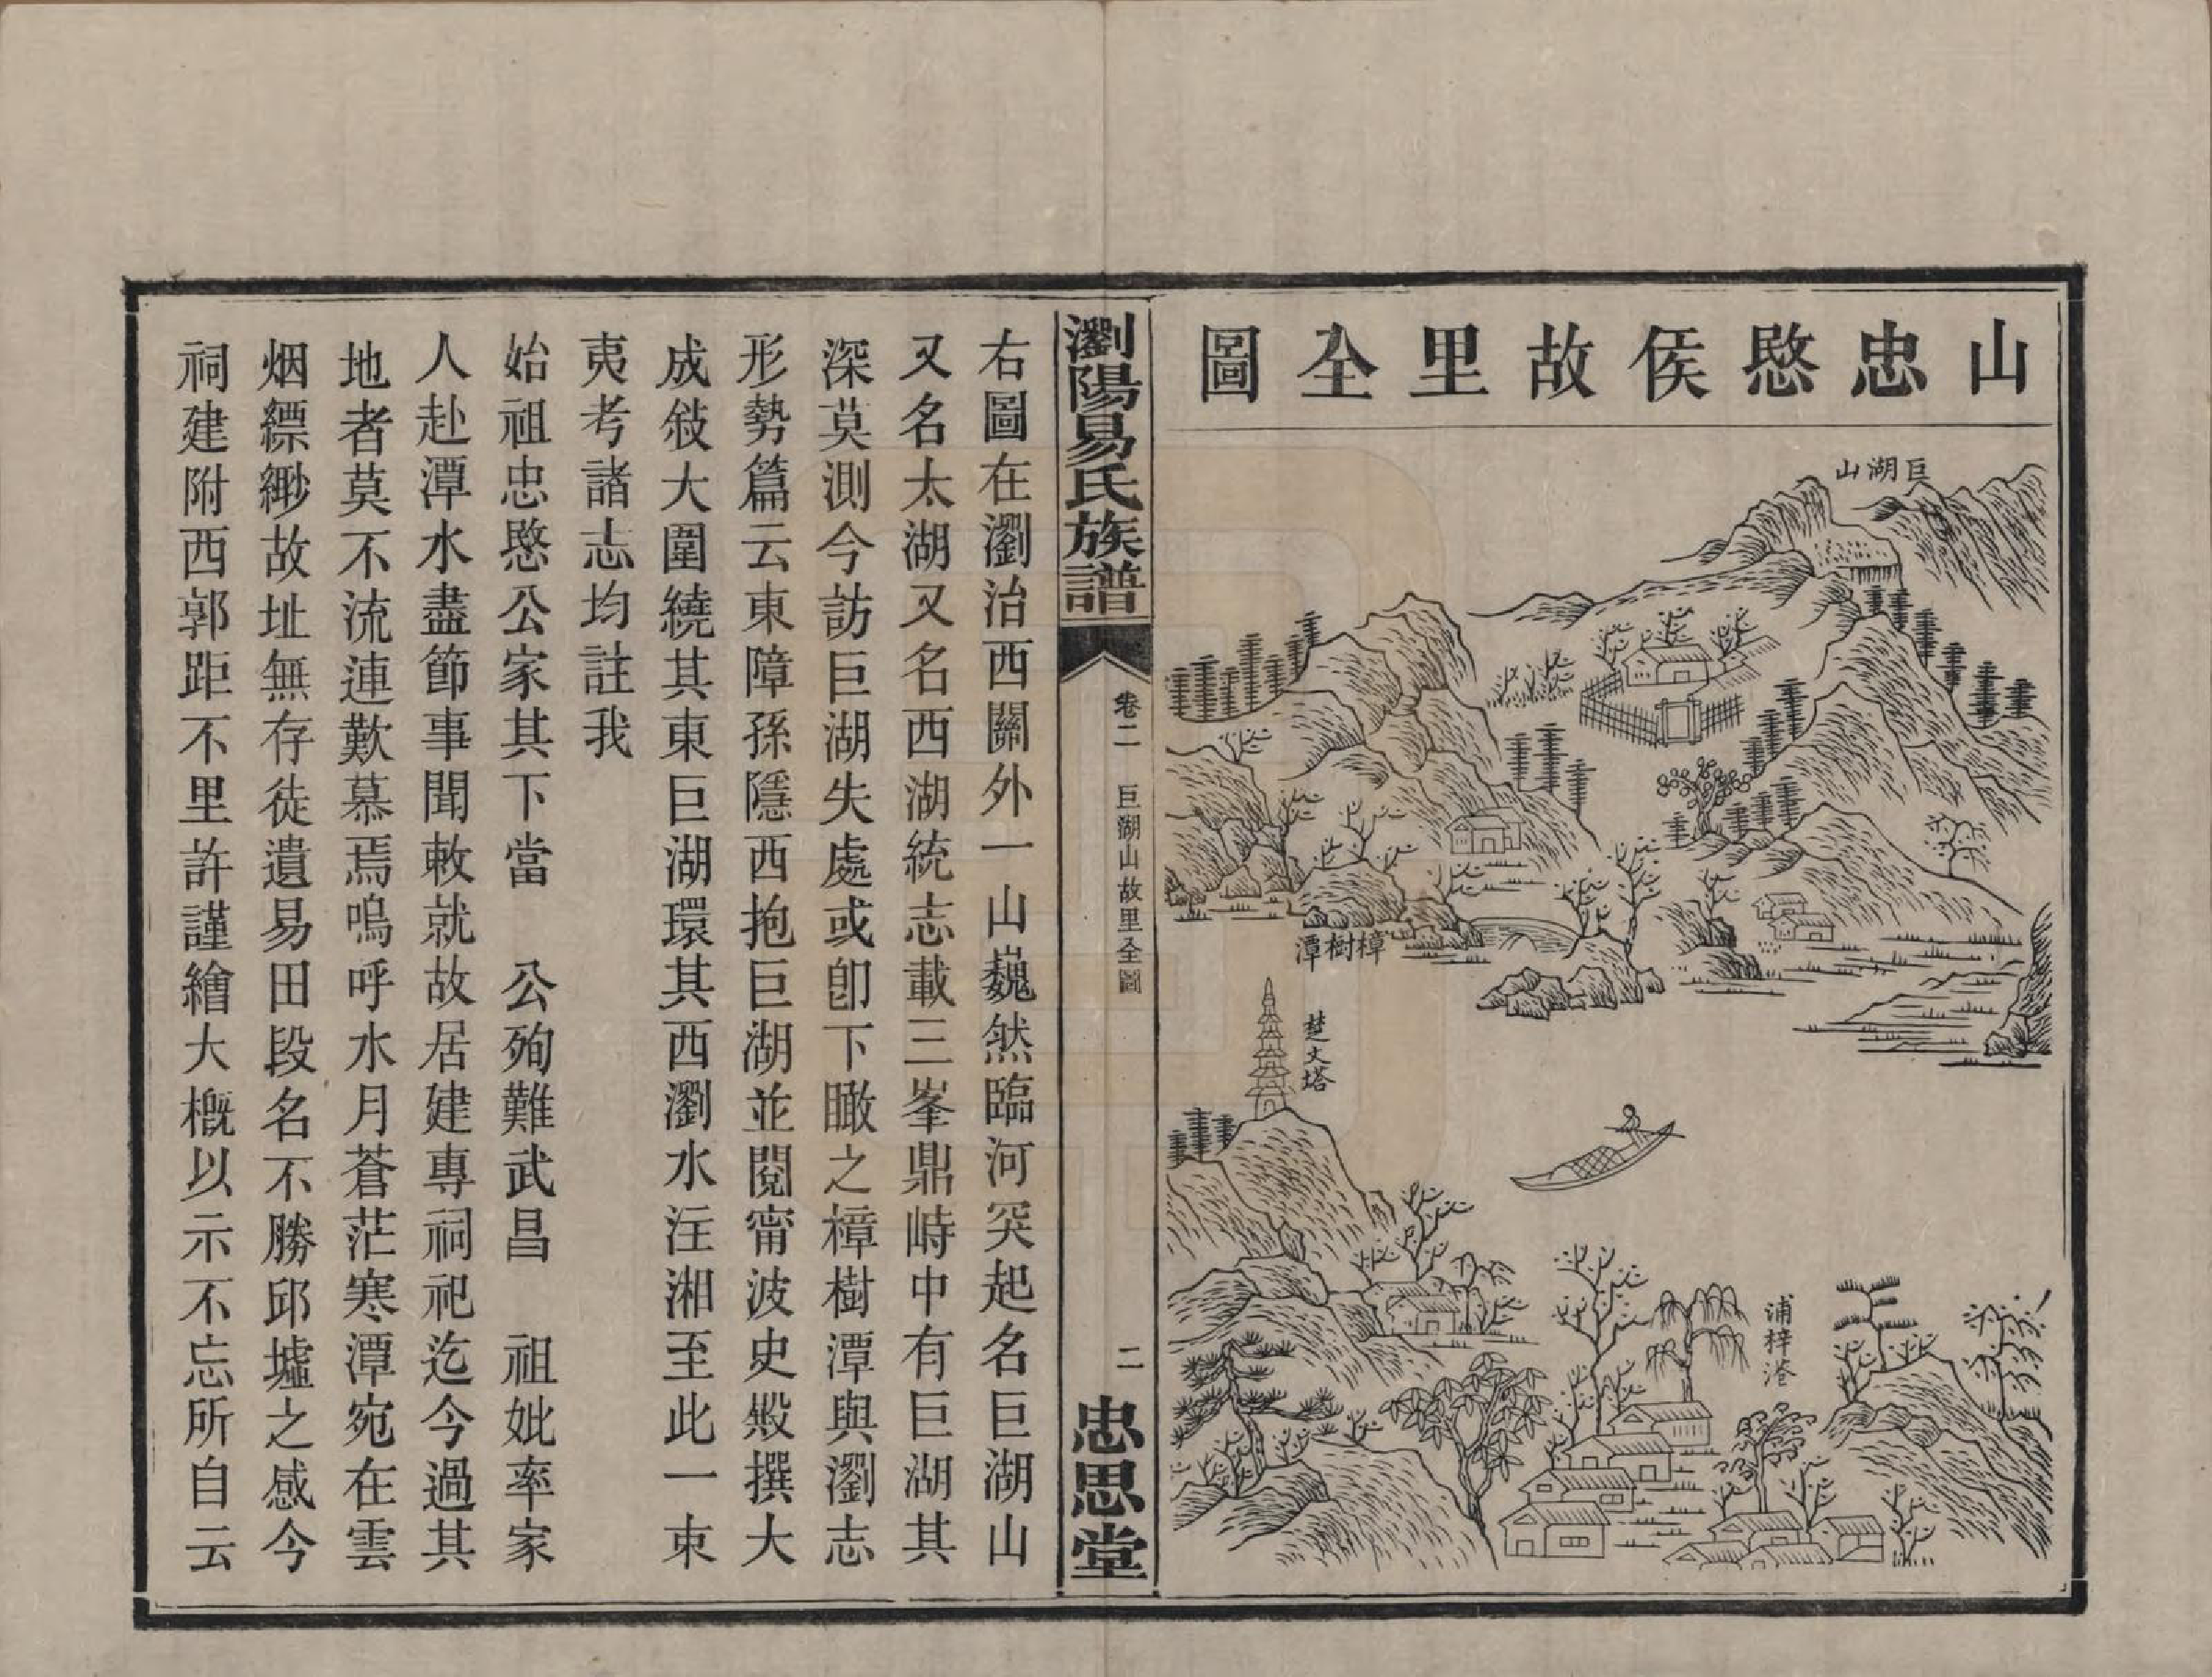 山忠愍侯故里全圖
巨湖山
樟樹潭
楚文塔
浦梓港
瀏陽易氏族譜
卷二
巨湖山故里全圖
二
忠思堂
右圖在瀏治西關外一山巍然臨河突起名巨湖山
又名太湖又名西湖統志載三峯鼎峙中有巨湖其
深莫測今訪巨湖失處或卽下瞰之樟樹潭與瀏志
形勢篇云東障孫隱西抱巨湖並閱甯波史㷫撰大
成敍大圍繞其東巨湖環其西瀏水注湘至此一束
夷考諸志均註我
始祖忠愍公家其下當　公殉難武昌　祖妣率家
人赴潭水盡節事聞敕就故居建專祠祀迄今過其
地者莫不流連歎慕焉嗚呼水月蒼茫寒潭宛在雲
烟縹緲故址無存徒遺易田段名不勝邱墟之感今
祠建附西郭距不里許謹繪大概以示不忘所自云